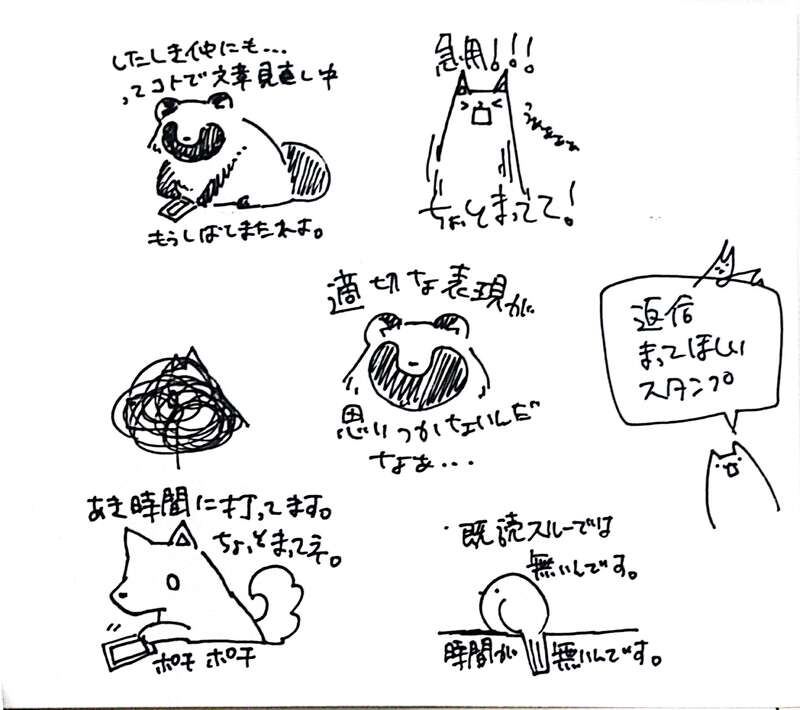 したしき仲にも...
ってコトで文章見直し中
もうしばしまたれよ。
急用!!!
ちょっとまってて!
適切な表現が
思いつかないんだ
なぁ...
返信
まってほしい
スタンプ
あき時間に打ってます。
ちょっとまってネ。
ポチ ポチ
既読スルーでは
無いんです。
時間が無いんです。